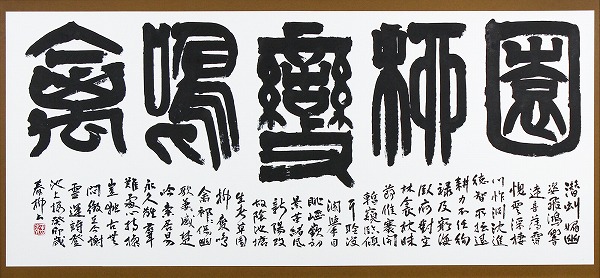 園柳變鳴禽
潛虯媚幽
姿飛鴻響
遠音薄霄
愧雲浮棲
川怍淵沈進
德智所拙退
耕力不任徇
祿及窮海
臥痾對空
林衾枕昧
節候褰開
暫窺臨傾
耳聆波
瀾舉目
眺嶇嶔初
景革緒風
新陽改
故陰池塘
生春草園
柳變鳴
禽祁祁傷豳
歌萋萋感楚
吟索居易
永久離群
難處心持操
豈獨古無
悶徵在今謝
靈運詩登
池上樓癸卯歲
春柳